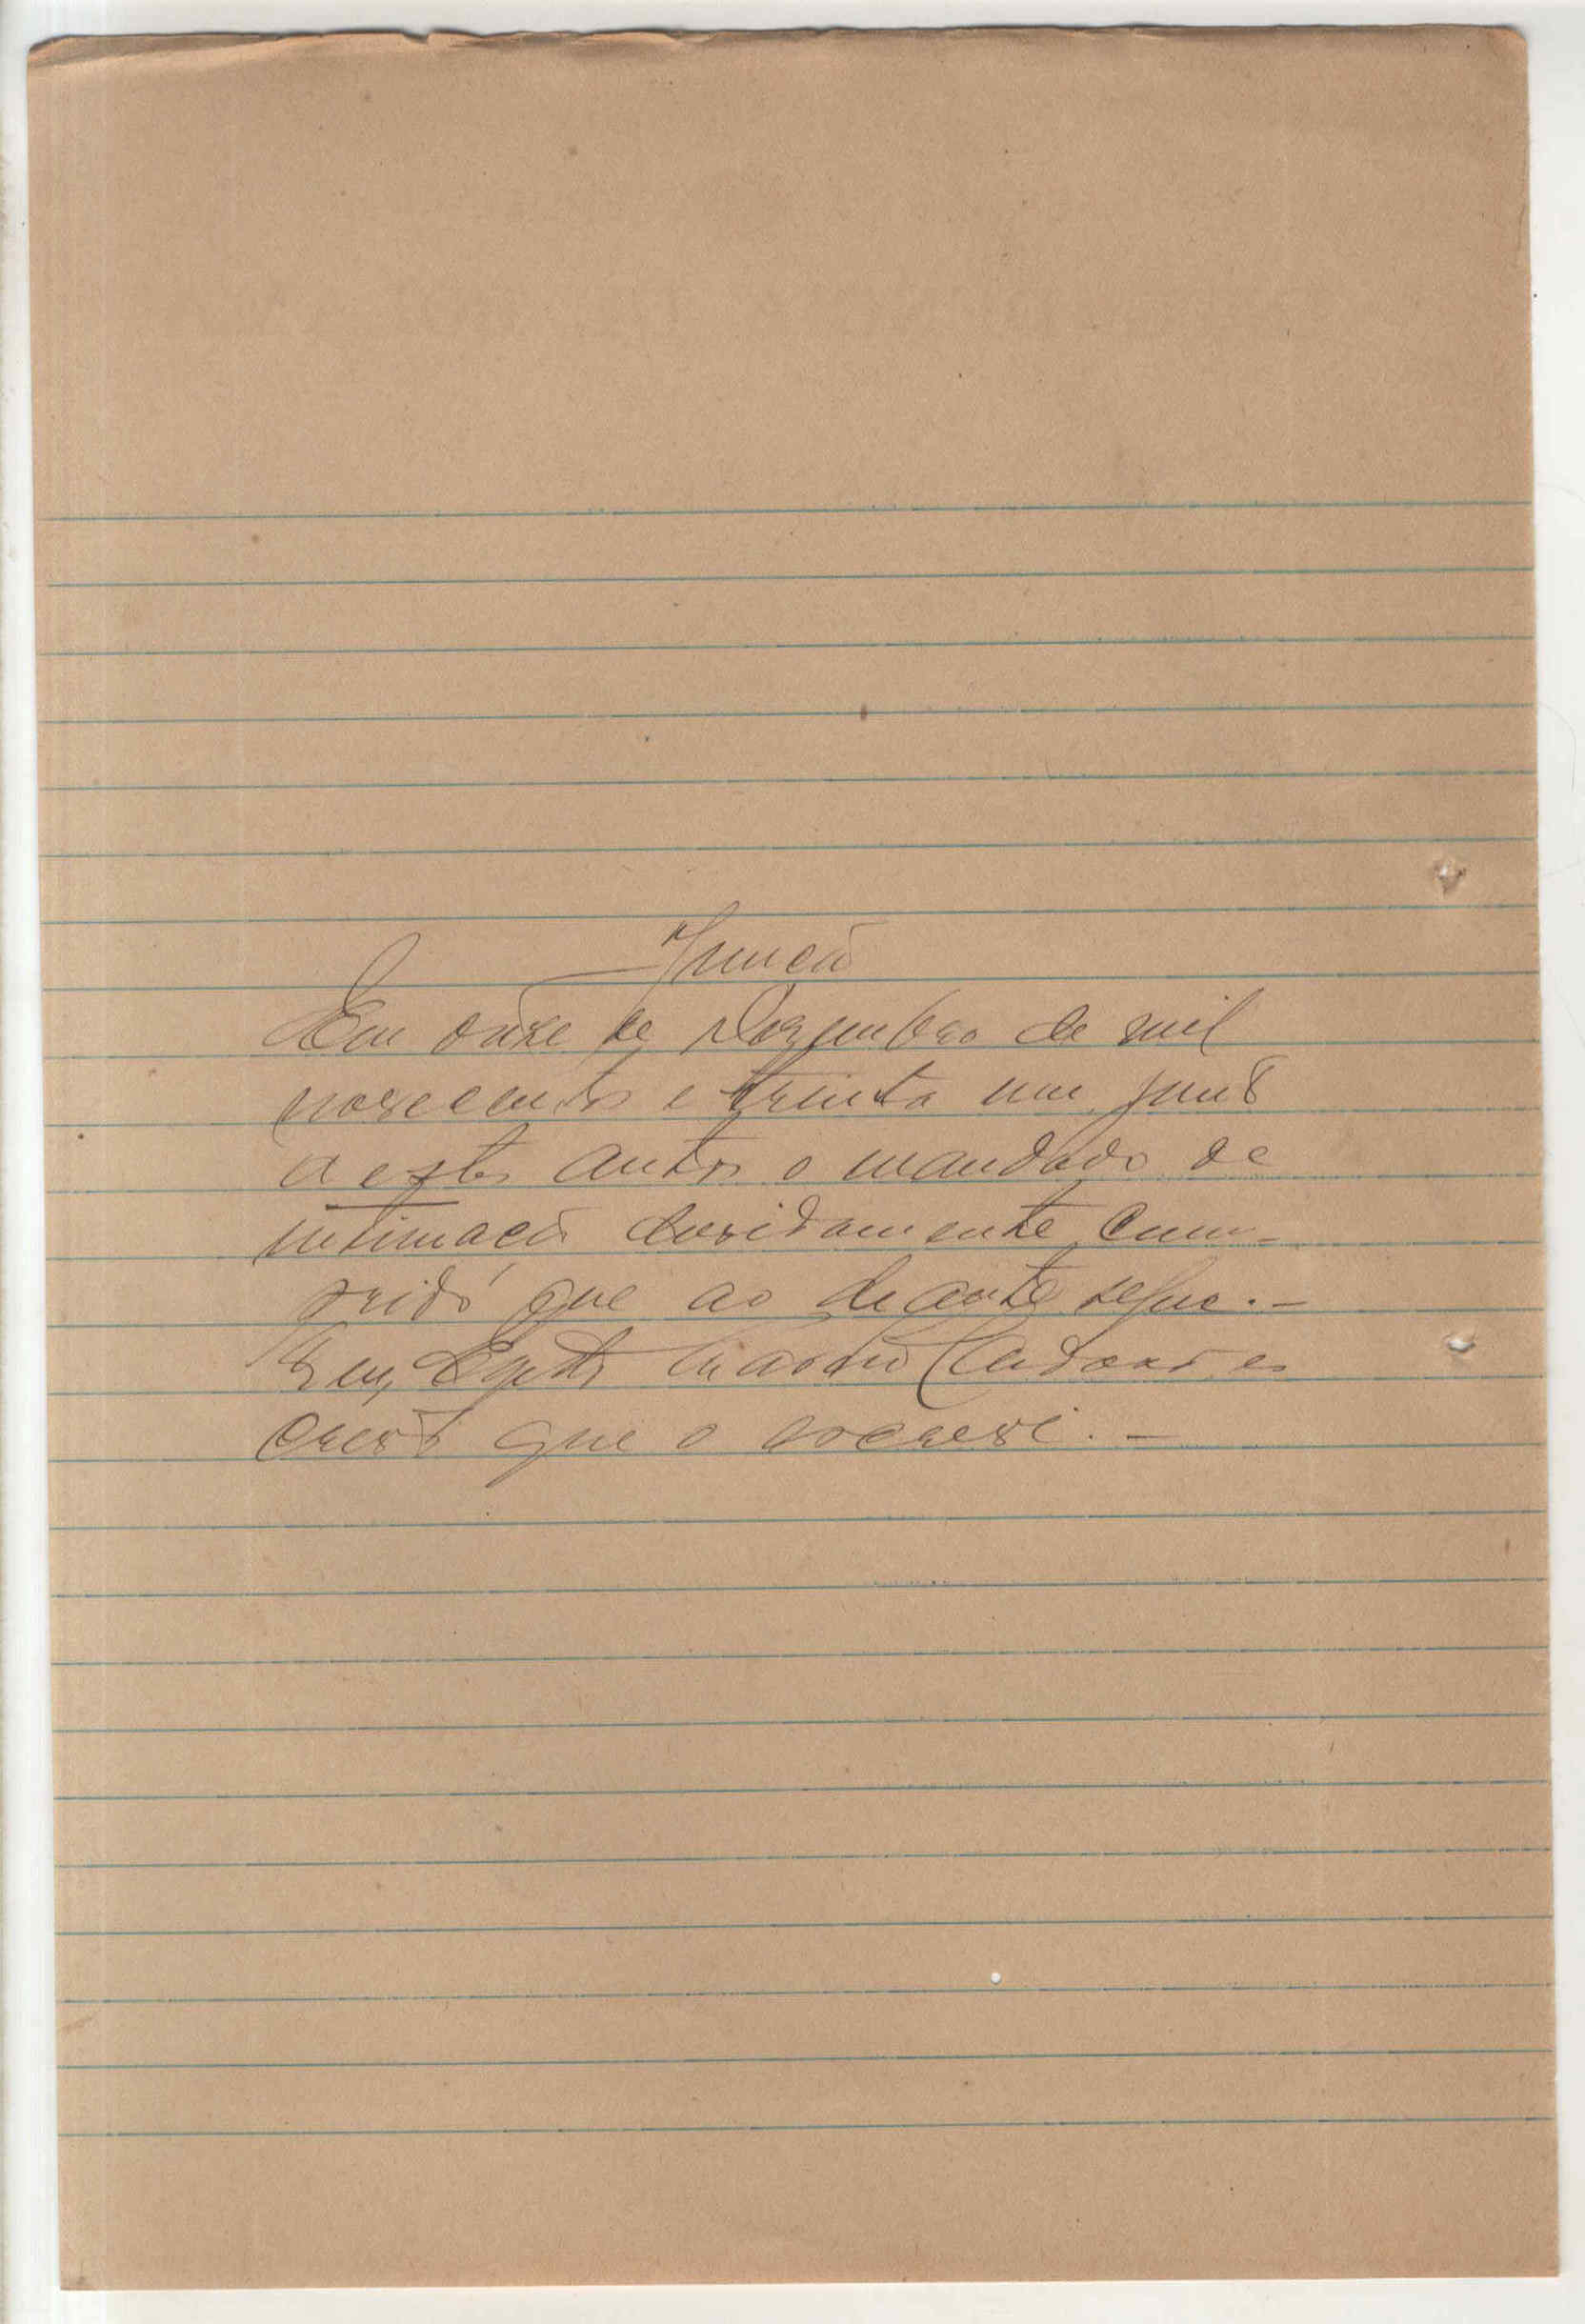 Juncão
Em onze de Dezembro de mil
novecentos e trinta um junto
a estes autos o mandado de
intimação devidamente cum-
prido que ao deante segue. -
Eu, es
crivão que o escrevi. -